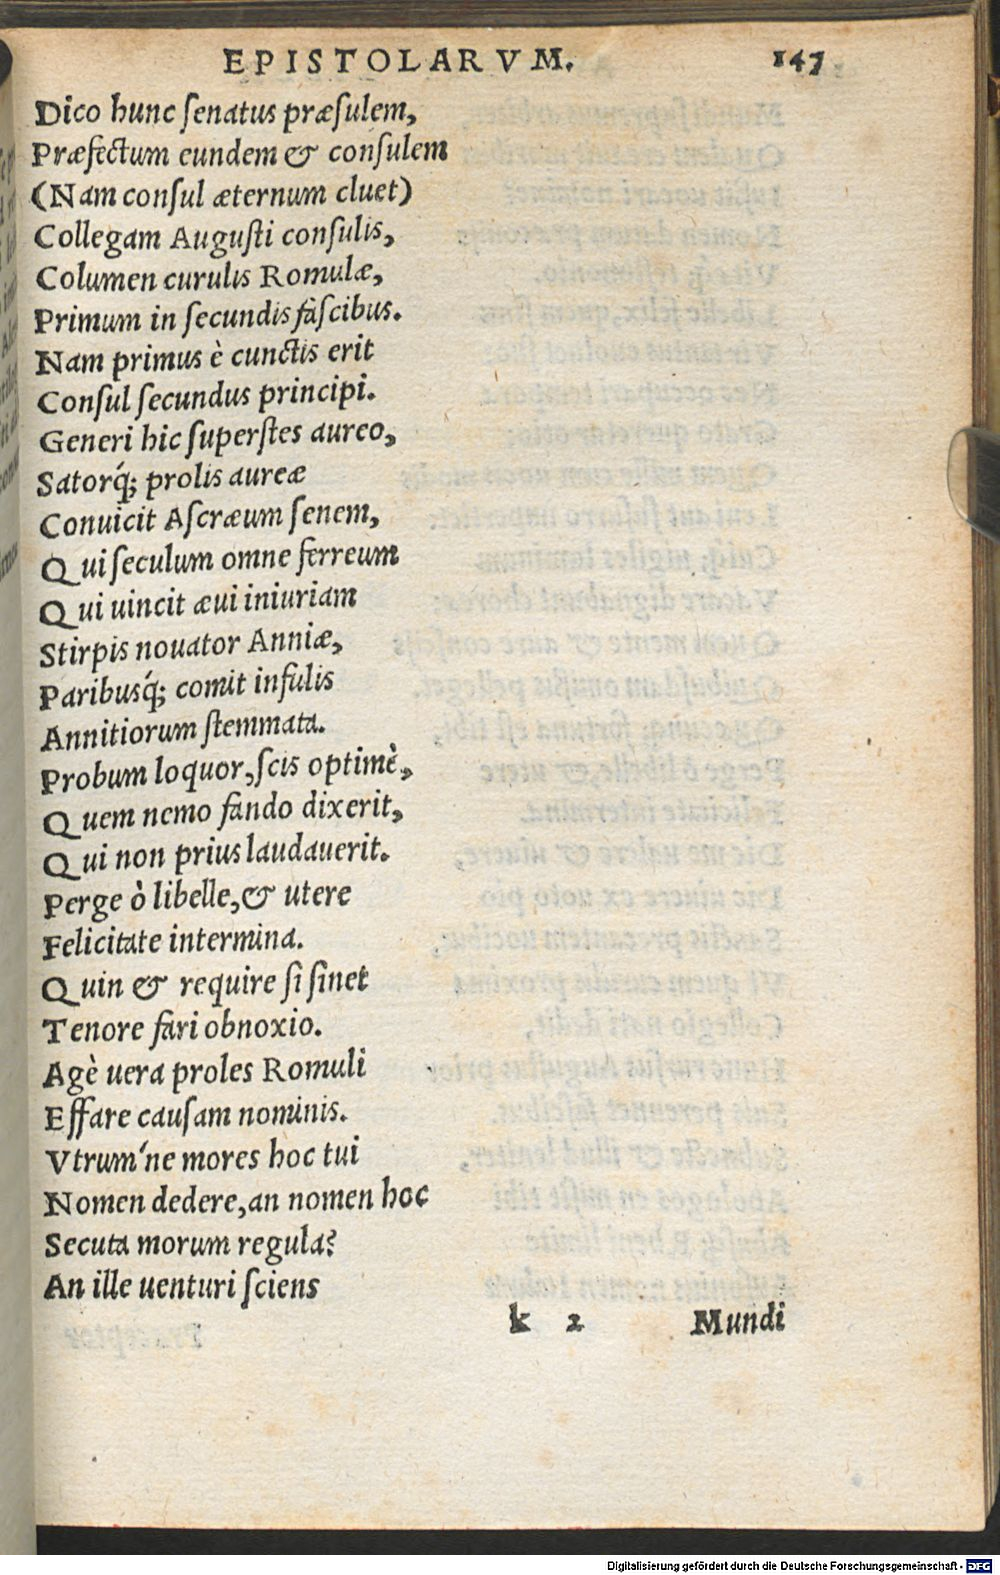 EPISTOLARVM. 147
Dico hunc ſenatus præſulem,
Præfectum eundem & conſulem
(Nam conſul æternum cluet)
Collegam Auguſti conſulis,
Columen curulis Romulæ,
Primum in ſecundis faſcibus.
Nam primus è cunctis erit
Conſul ſecundus principi.
Generi hic ſuperſtes aureo,
Satorq́; prolis aureæ
Conuicit Aſcræum ſenem,
Qui ſeculum omne ferreum
Qui uincit æui iniuriam
Stirpis nouator Anniæ,
Paribusq́; comit infulis
Annitiorum ſtemmata.
Probum loquor, ſcis optimè,
Quem nemo fando dixerit,
Qui non prius laudauerit.
Perge ò libelle, & utere
Felicitate intermina.
Quin & require ſi ſinet
Tenore fari obnoxio.
Agè uera proles Romuli
Effare cauſam nominis.
Vtrum´ne mores hoc tui
Nomen dedere, an nomen hoc
Secuta morum regula?
An ille uenturi ſciens
k 2 Mundi
Digitalisierung gefördert durch die Deutsche Forschungsgemeinschaft - DFG